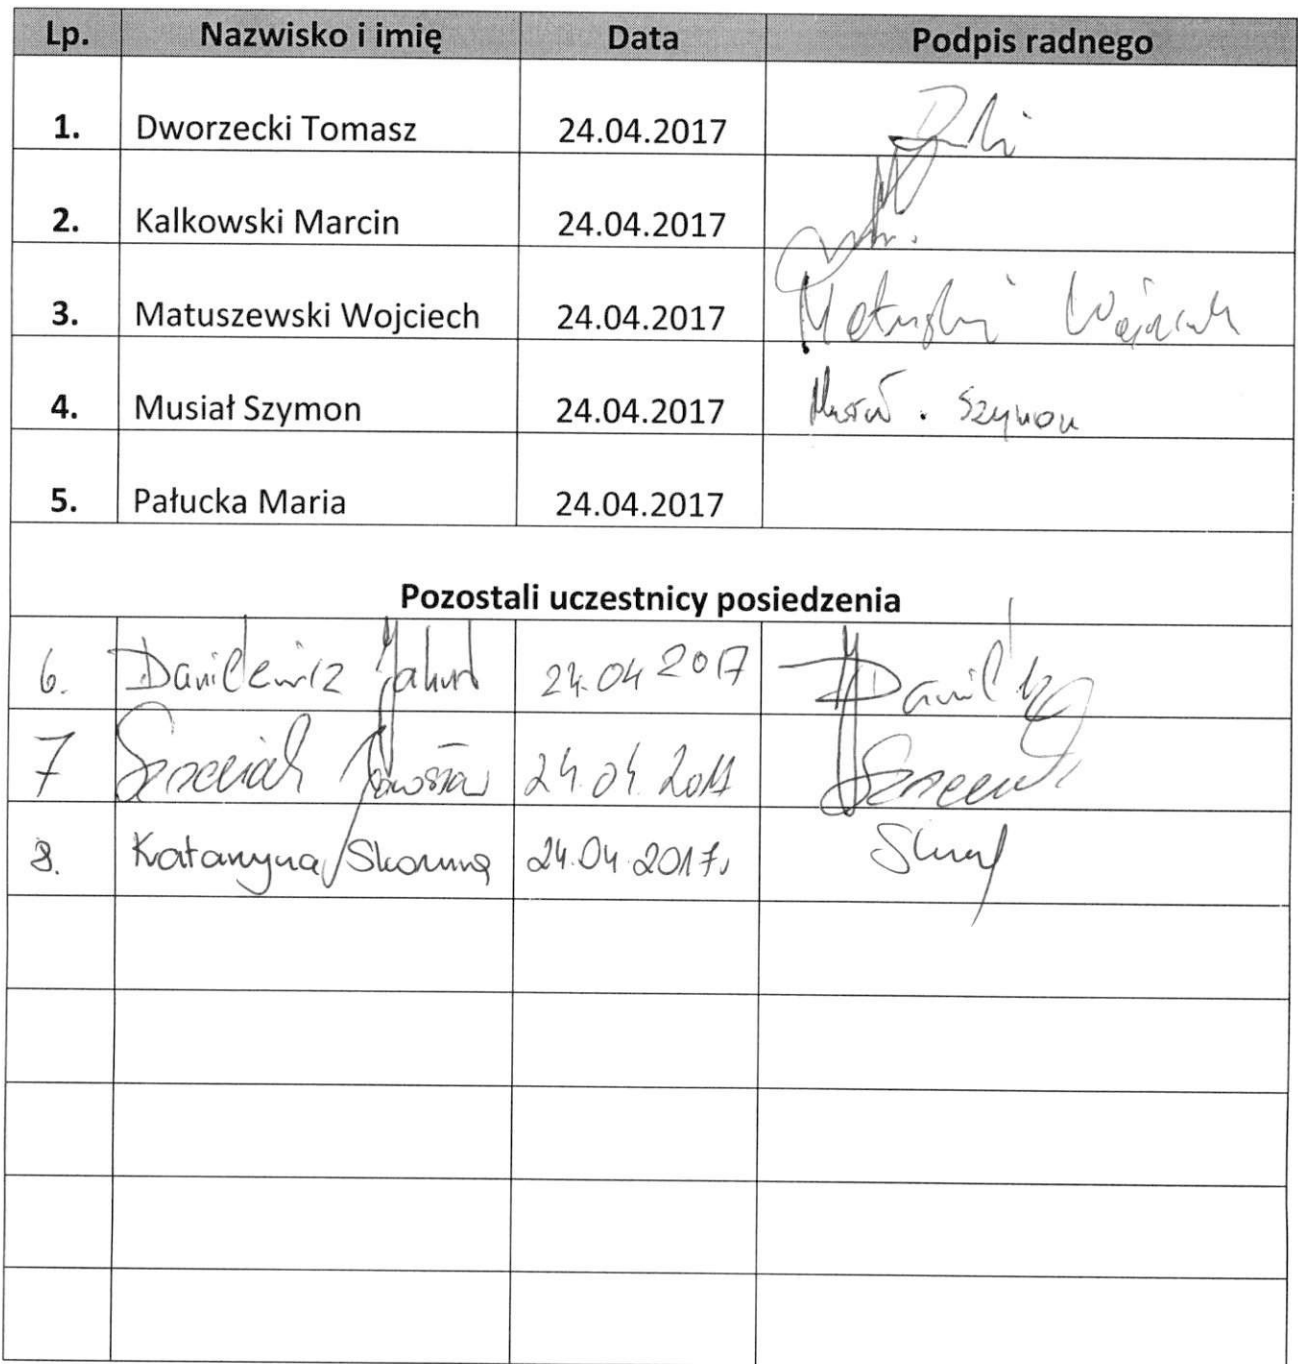 Lp. Nazwisko i imię Data Podpis radnego
1. Dworzecki Tomasz 24.04.2017
2. Kalkowski Marcin 24.04.2017
3. Matuszewski Wojciech 24.04.2017
4. Musiał Szymon 24.04.2017 Musiał . Szymon
5. Pałucka Maria 24.04.2017
Pozostali uczestnicy posiedzenia
6. Danilewicz Jakub 24.04 2017
7 24.04.2017
8. Katarzyna 24.04.2017r.